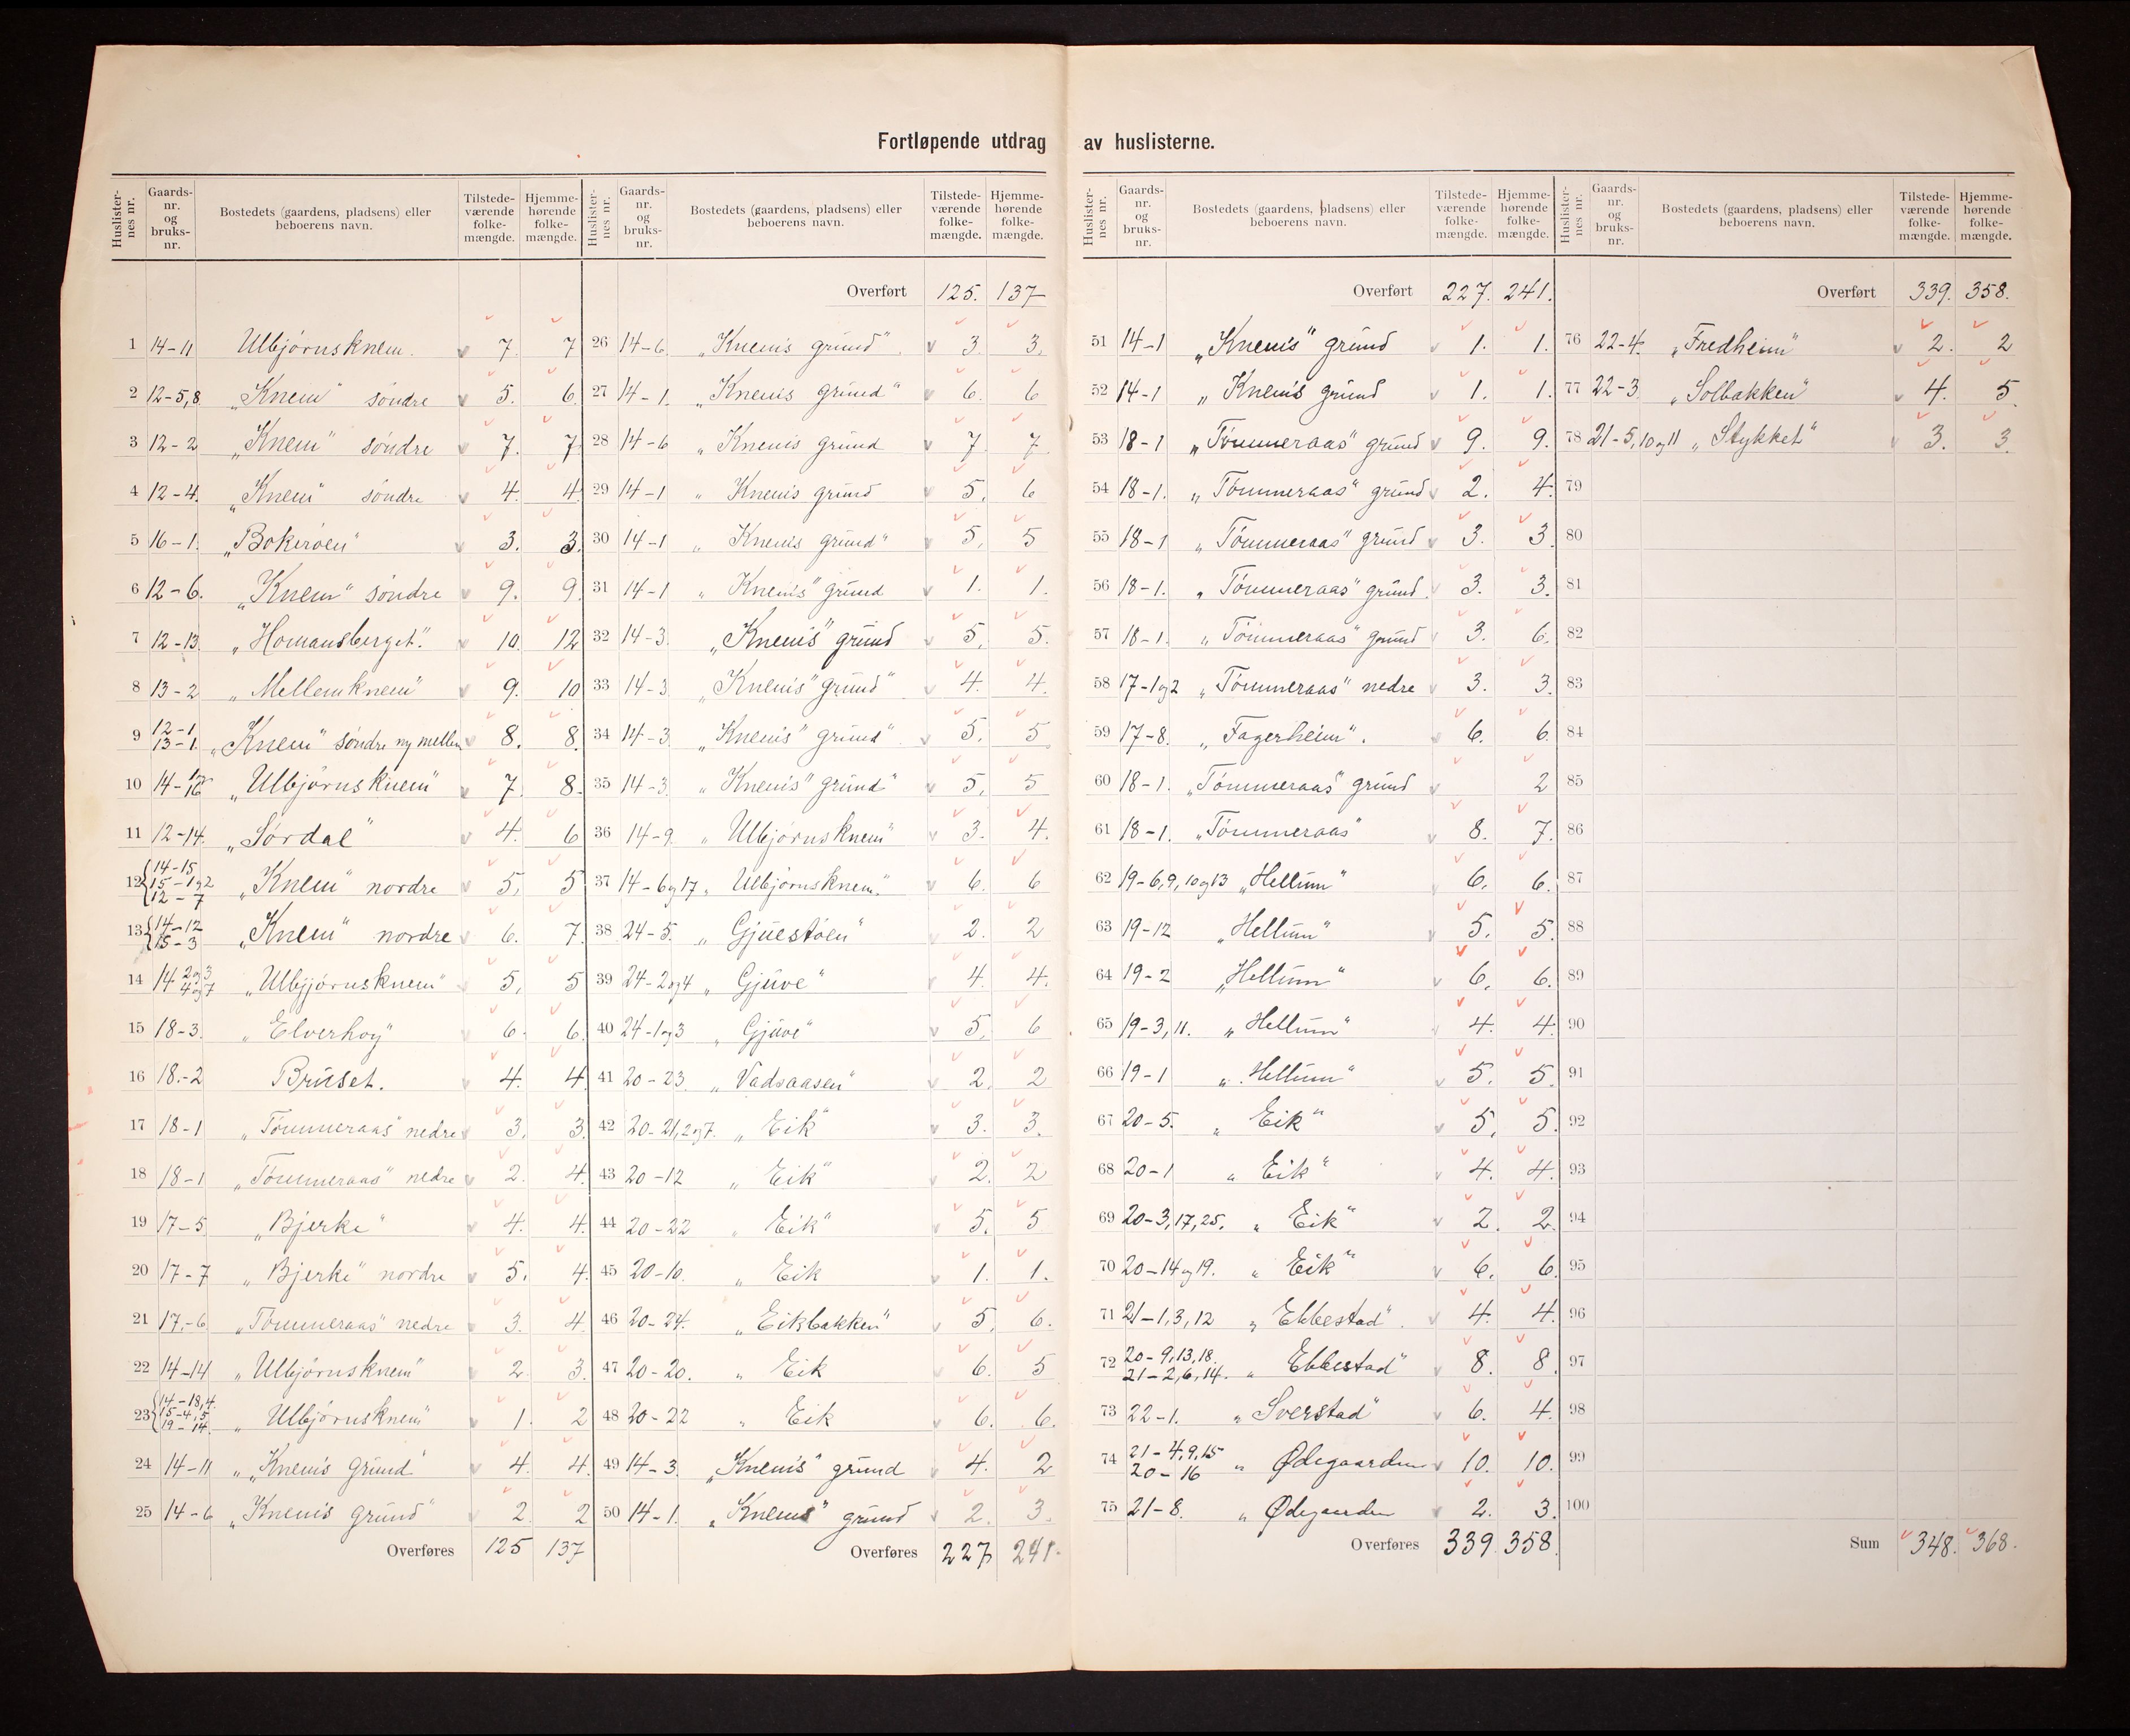 Fortløpende utdrag av huslisterne.
Huslister-nes nr. Gaards-nr. og bruks-nr. Bostedets (gaardens, pladsens) eller beboerens navn. Tilstede-værende folke-mængde. Hjemme-hørende folke-mængde.
1 14-11 Ulbjørnsknem. 7. 7
2 12-5,8 „Knem" søndre 5. 6
3 12-2 „Knem" søndre 7. 7
4 12-4. „Knem" søndre 4. 4
5 16-1. „Bokerøen" 3. 3.
6 12-6. „Knem" søndre 9. 9
7 12-13. „Homansberget". 10. 12
8 13-2 „Mellemknem" 9. 10
9 12-1 13-1. „Knem" søndre ny mellem 8. 8
10 14- 16 „Ulbjørnsknem" 7. 8.
11 12-14. „Sørdal" 4. 6
12 14-15 15-1og2 12-7 „Knem" nordre 5. 5
13 14-12 15-3 „Knem" nordre 6. 7
14 14 2og3 4og7 „Ulbjørnsknem" 5. 5
15 18-3. „Elverhøy" 6. 6
16 18.-2 Bruset. 4. 4
17 18-1 „Tømmeraas" nedre 3. 3.
18 18-1 „Tømmeraas" nedre 2. 4.
19 17-5. „Bjerke" 4. 4.
20 17-7 „Bjerke" nordre 5. 4.
21 17.-6 „Tømmeraas" nedre 3. 4
22 14-14 „Ulbjørnsknem" 2. 3.
23 14-18,4. 15-4,5 19-14. „Ulbjørnsknem" 1. 2
24 14-11 „„Knem's grund" 4. 4
25 14-6 „Knem's grund" 2. 2
Overføres 125 137
Huslister-nes nr. Gaards-nr. og bruks-nr. Bostedets (gaardens, pladsens) eller beboerens navn. Tilstede-værende folke-mængde. Hjemme-hørende folke-mængde.
Overført 125. 137
26 14-6 „Knem's grund". 3. 3.
27 14-1. „Knem's grund" 6. 6
28 14-6 „Knem's grund 7. 7
29 14-1 „Knem's grund 5. 6
30 14-1 „Knem's grund" 5. 5
31 14-1 „Knem's" grund 1. 1.
32 14-3. „Knem's" grund 5. 5.
33 14-3 „Knem's" grund" 4. 4.
34 14-3 „Knem's" grund" 5. 5
35 14-3 „Knem's" grund" 5. 5
36 14-9. „Ulbjørnsknem" 3. 4.
37 14-6og17 „Ulbjørnsknem." 6. 6
38 24-5. „Gjuestøen" 2. 2
39 24-2og4 „Gjuve" 4. 4.
40 24-1og3 „Gjuve" 5. 6
41 20-23. „Vadsaasen" 2. 2
42 20-21,2og7. „Eik" 3. 3.
43 20-12 „Eik" 2. 2
44 20-22 „Eik" 5. 5
45 20-10. „Eik 1. 1.
46 20-24. „Eikbakken" 5. 6.
47 20-20. „Eik 6. 5
48 20-22 „Eik 6. 6.
49 14-3. „Knem's" grund 4. 2
50 14-1. „Knem's" grund 2. 3.
Overføres 227 241.
Huslister-nes nr. Gaards-nr. og bruks-nr. Bostedets (gaardens, pladsens) eller beboerens navn. Tilstede-værende folke-mængde. Hjemme-hørende folke-mængde.
Overført 227. 241.
51 14-1 „Knem's" grund 1. 1.
52 14-1 „Knem's grund 1. 1.
53 18-1 „Tømmeraas" grund 9. 9.
54 18-1. „Tømmeraas" grund 2. 4.
55 18-1 „Tømmeraas" grund 3. 3.
56 18-1. „Tømmeraas" grund. 3. 3.
57 18-1. „Tømmeraas" grund 3. 6.
58 17-1og2 „Tømmeraas" nedre 3. 3.
59 17-8. „Fagerheim". 6. 6.
60 18-1. „Tømmeraas" grund 2
61 18-1. „Tømmeraas" 8. 7.
62 19-6,9,10og13 „Hellum" 6. 6.
63 19-12 „Hellum" 5. 5.
64 19-2 „Hellum" 6. 6.
65 19-3,11. „Hellum" 4. 4.
66 19-1 „Hellum" 5. 5.
67 20-5. „Eik" 5. 5.
68 20-1 „Eik" 4. 4.
69 20-3,17,25. „Eik" 2. 2.
70 20-14og19. „Eik" 6. 6.
71 21-1,3,12 „Ebbestad". 4. 4.
72 20-9,13,18. 21-2,6,14. „Ebbestad" 8. 8.
73 22-1. „Sverstad" 6. 4.
74 21-4,9,15 20-16 „Ødegaarden 10. 10.
75 21-8. „Ødegaarden 2. 3.
Overføres 339. 358.
Huslister-nes nr. Gaards-nr. og bruks-nr. Bostedets (gaardens, pladsens) eller beboerens navn. Tilstede-værende folke-mængde. Hjemme-hørende folke-mængde.
Overført 339. 358.
76 22-4. „Fredheim" 2. 2
77 22-3. „Solbakken" 4. 5.
78 21-5,10og11 „Stykket" 3. 3.
79
80
81
82
83
84
85
86
87
88
89
90
91
92
93
94
95
96
97
98
99
100
Sum 348. 368.